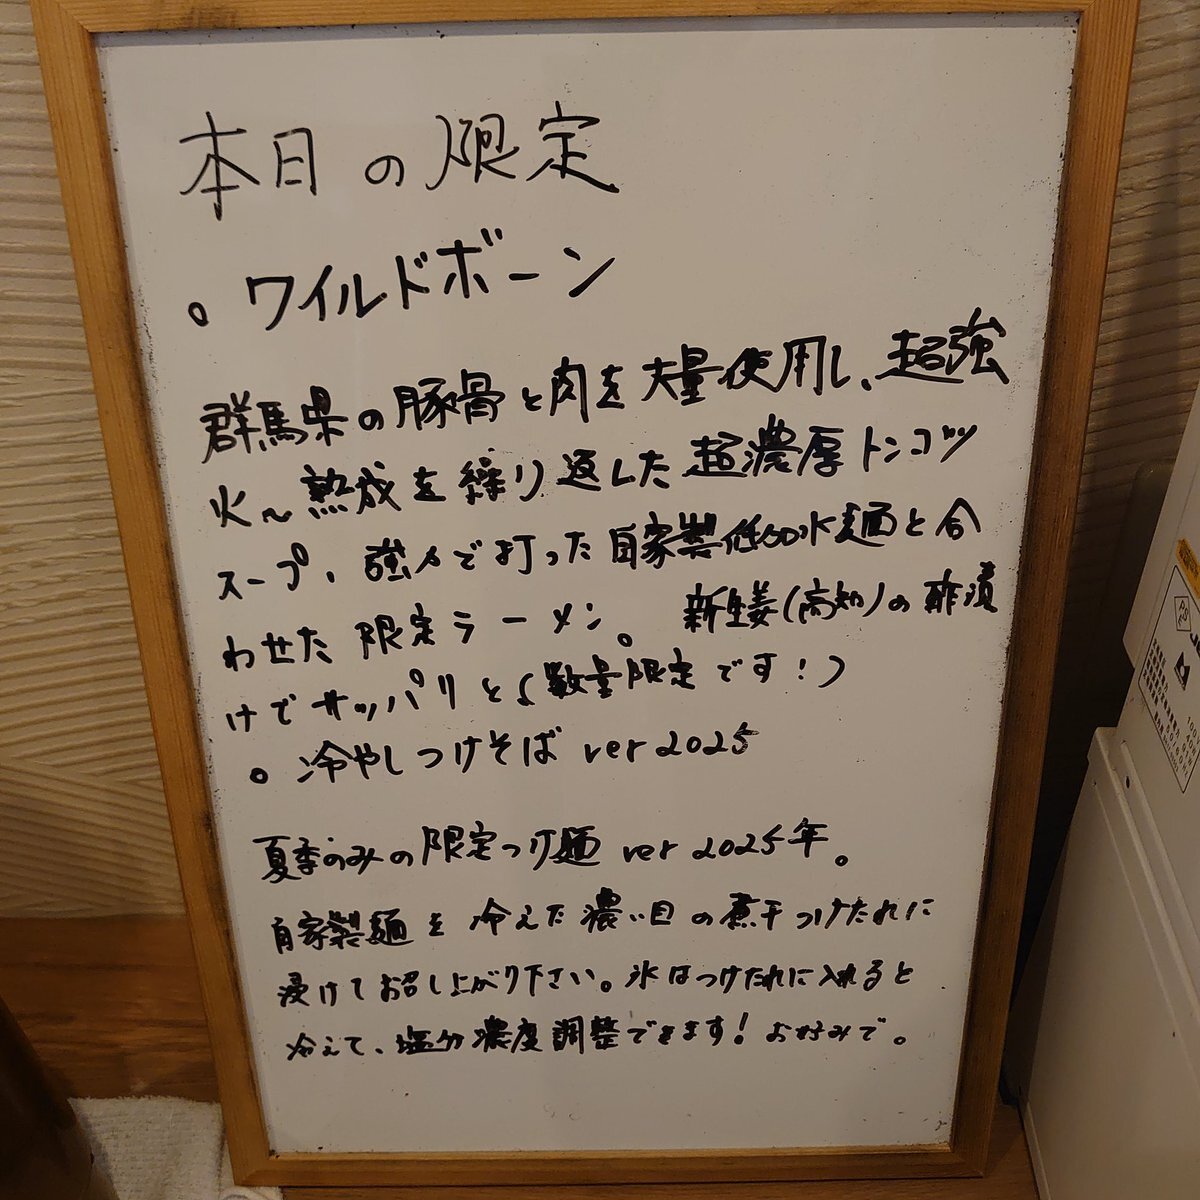 本日の限定
。ワイルドボーン
群馬県の豚骨と肉を大量使用し、超強
火〜熟成を繰り返した超濃厚トンコツ
スープ、強力で打った自家製低加水麺と合
わせた限定ラーメン。新生姜(高知)の酢漬
けでサッパリと(数量限定です!)
。冷やしつけそば ver 2025
夏季のみの限定つけ麺 ver 2025年。
自家製麺を冷えた濃い目の煮干つけたれに
浸けてお召し上がり下さい。氷はつけたれに入れると
冷えて、塩分濃度調整できます!お好みで。